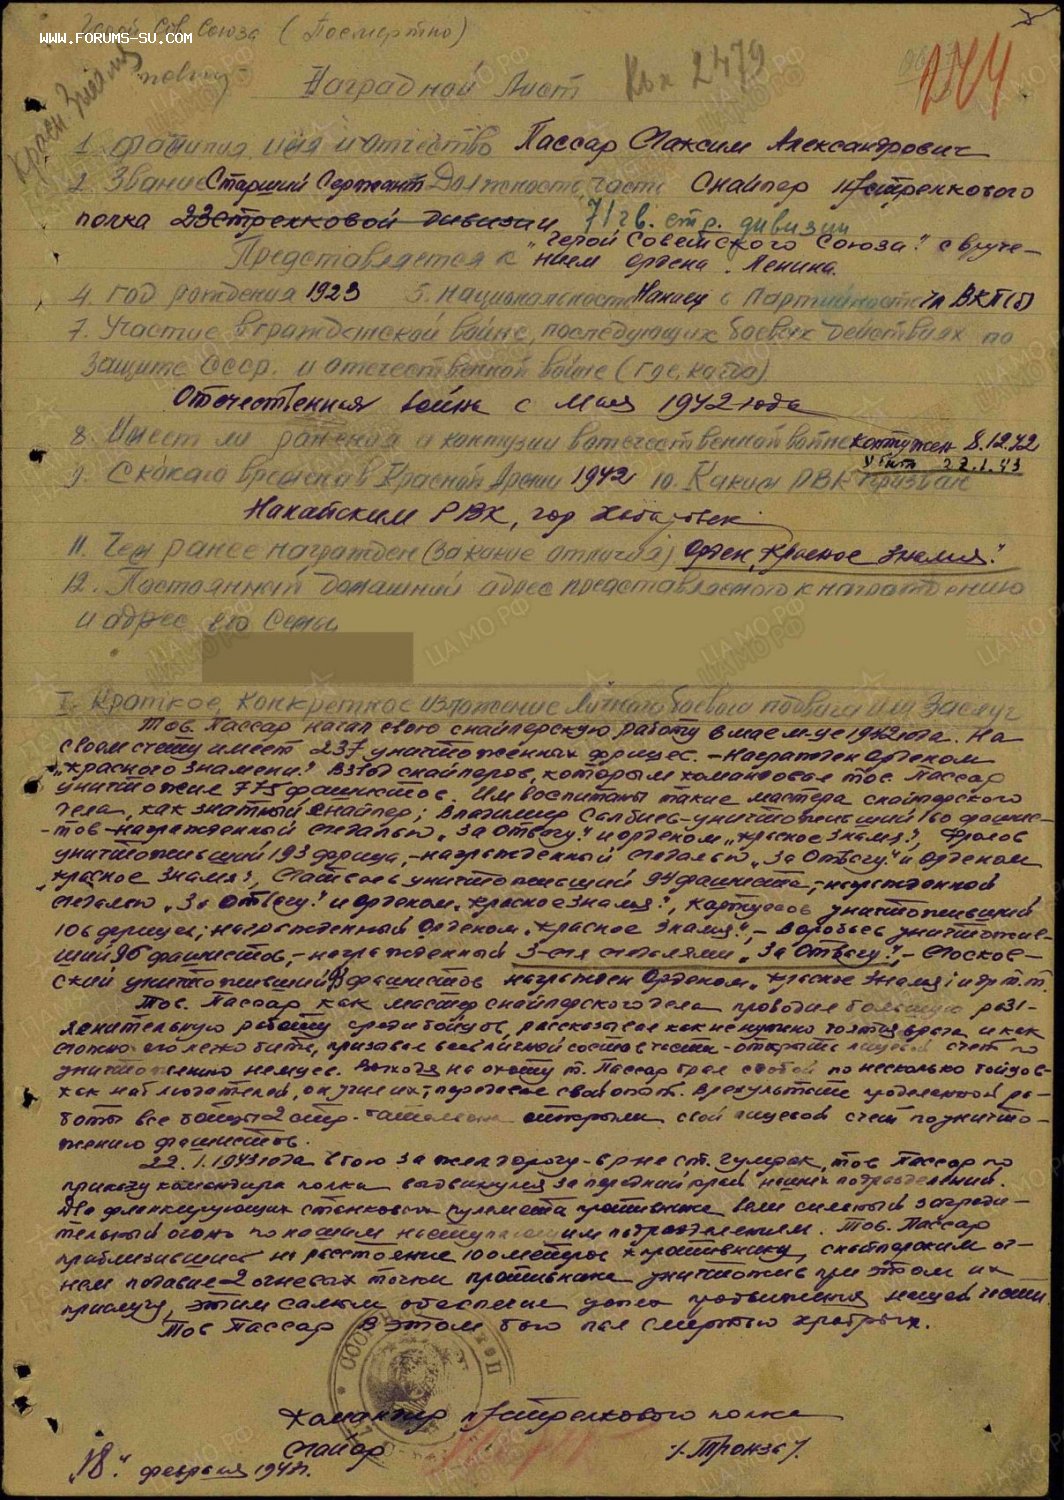 Герой Сов Союза (Посмертно)
WWW.FORUMS-SU.COM
Красн Знамя
Наградной Лист
2479
1. Фамилия, имя и отчество Пассар Максим Александрович
2. Звание Старший Сержант Должность, часть Снайпер 117 стрелкового
полка 23 стрелковой дивизии 71 гв. стр. дивизии
Представляется к "Герой Советского Союза" с вруче-
нием ордена "Ленина.
4. год рождения 1923 5. национальность Нанаец 6 Партийность Чл ВКП(б)
7. Участие в гражданской войне, последующих боевых действиях по
защите СССР. и отечественной войне (где, когда)
Отечественная война с Мая 1942 года
8. Имеет ли ранения и контузии в отечественной войне контужен 8.12.42
убит 22.1.43
9. С какого времени в Красной Армии 1942 10. Каким РВК призван
Нанайским РВК, гор Хабаровск
11. Чем ранее награжден (за какие отличия) Орден "Красное Знамя".
12. Постоянный домашний адрес представляемого к награждению
и адрес его Семьи
I. Краткое, конкретное изложение личного боевого подвига или Заслуг
Тов. Пассар начал свою снайперскую работу в мае м-це 1942 года. На
своем счету имеет 237 уничтоженных фрицев. - Награжден Орденом
"Красного Знамени". Взвод снайперов, которым командовал тов. Пассар
уничтожил 775 фашистов. Им воспитаны такие мастера снайперского
дела, как знатный снайпер; Владимир Салбиев - уничтоживший 160 фашис-
тов - награжденный Медалью "За Отвагу" и орденом "Красное Знамя", Фролов
уничтоживший 193 фрица, - награжденный Медалью "За Отвагу" и Орденом
"Красное Знамя", Матвеев уничтоживший 94 фашиста, - награжденной
Медалью "За Отвагу" и Орденом "Красное Знамя", Карпусов уничтоживший
106 фрицев; награжденный Орденом "Красное Знамя", - Воробьев уничтожив-
ший 96 фашистов, - награжденный 3-мя медалями "За Отвагу", -
ский уничтоживший фашистов награжден Орденом "Красное Знамя" и др. т.т.
Тов. Пассар как мастер снайперского дела проводил большую разъ-
яснительную работу среди бойцов, рассказывая как не нужно бояться врага и как
можно его легко бить, призывал весь личной состав части - открыть лицевой счет по
уничтожению немцев. Выходя на охоту т. Пассар брал с собой по несколько бойцов-
как наблюдателей, он учил их, передавая свой опыт. В результате проделанной ра-
боты все бойцы 2 стр. батальона открыли свой лицевой счет по уничто-
жению фашистов.
22.1.1943 года в бою за жел дорогу - в р не ст. Гумрак, тов Пассар по
приказу командира полка выдвинулся за передний край наших подразделений.
Два фланкирующих станковых пулемета противника вели сильный загради-
тельный огонь по нашим наступающим подразделениям. Тов. Пассар
приблизившись на расстояние 100 метров к противнику, снайперским ог-
нем подавил 2 огневых точки противника уничтожив при этом их
прислугу, этим самым обеспечив успех продвижения нашей части.
Тов Пассар в этом бою пал смертью храбрых.
Командир 117 стрелкового полка
Майор /Тронза/.
"18" февраля 1943 г.
ЦА МО РФ